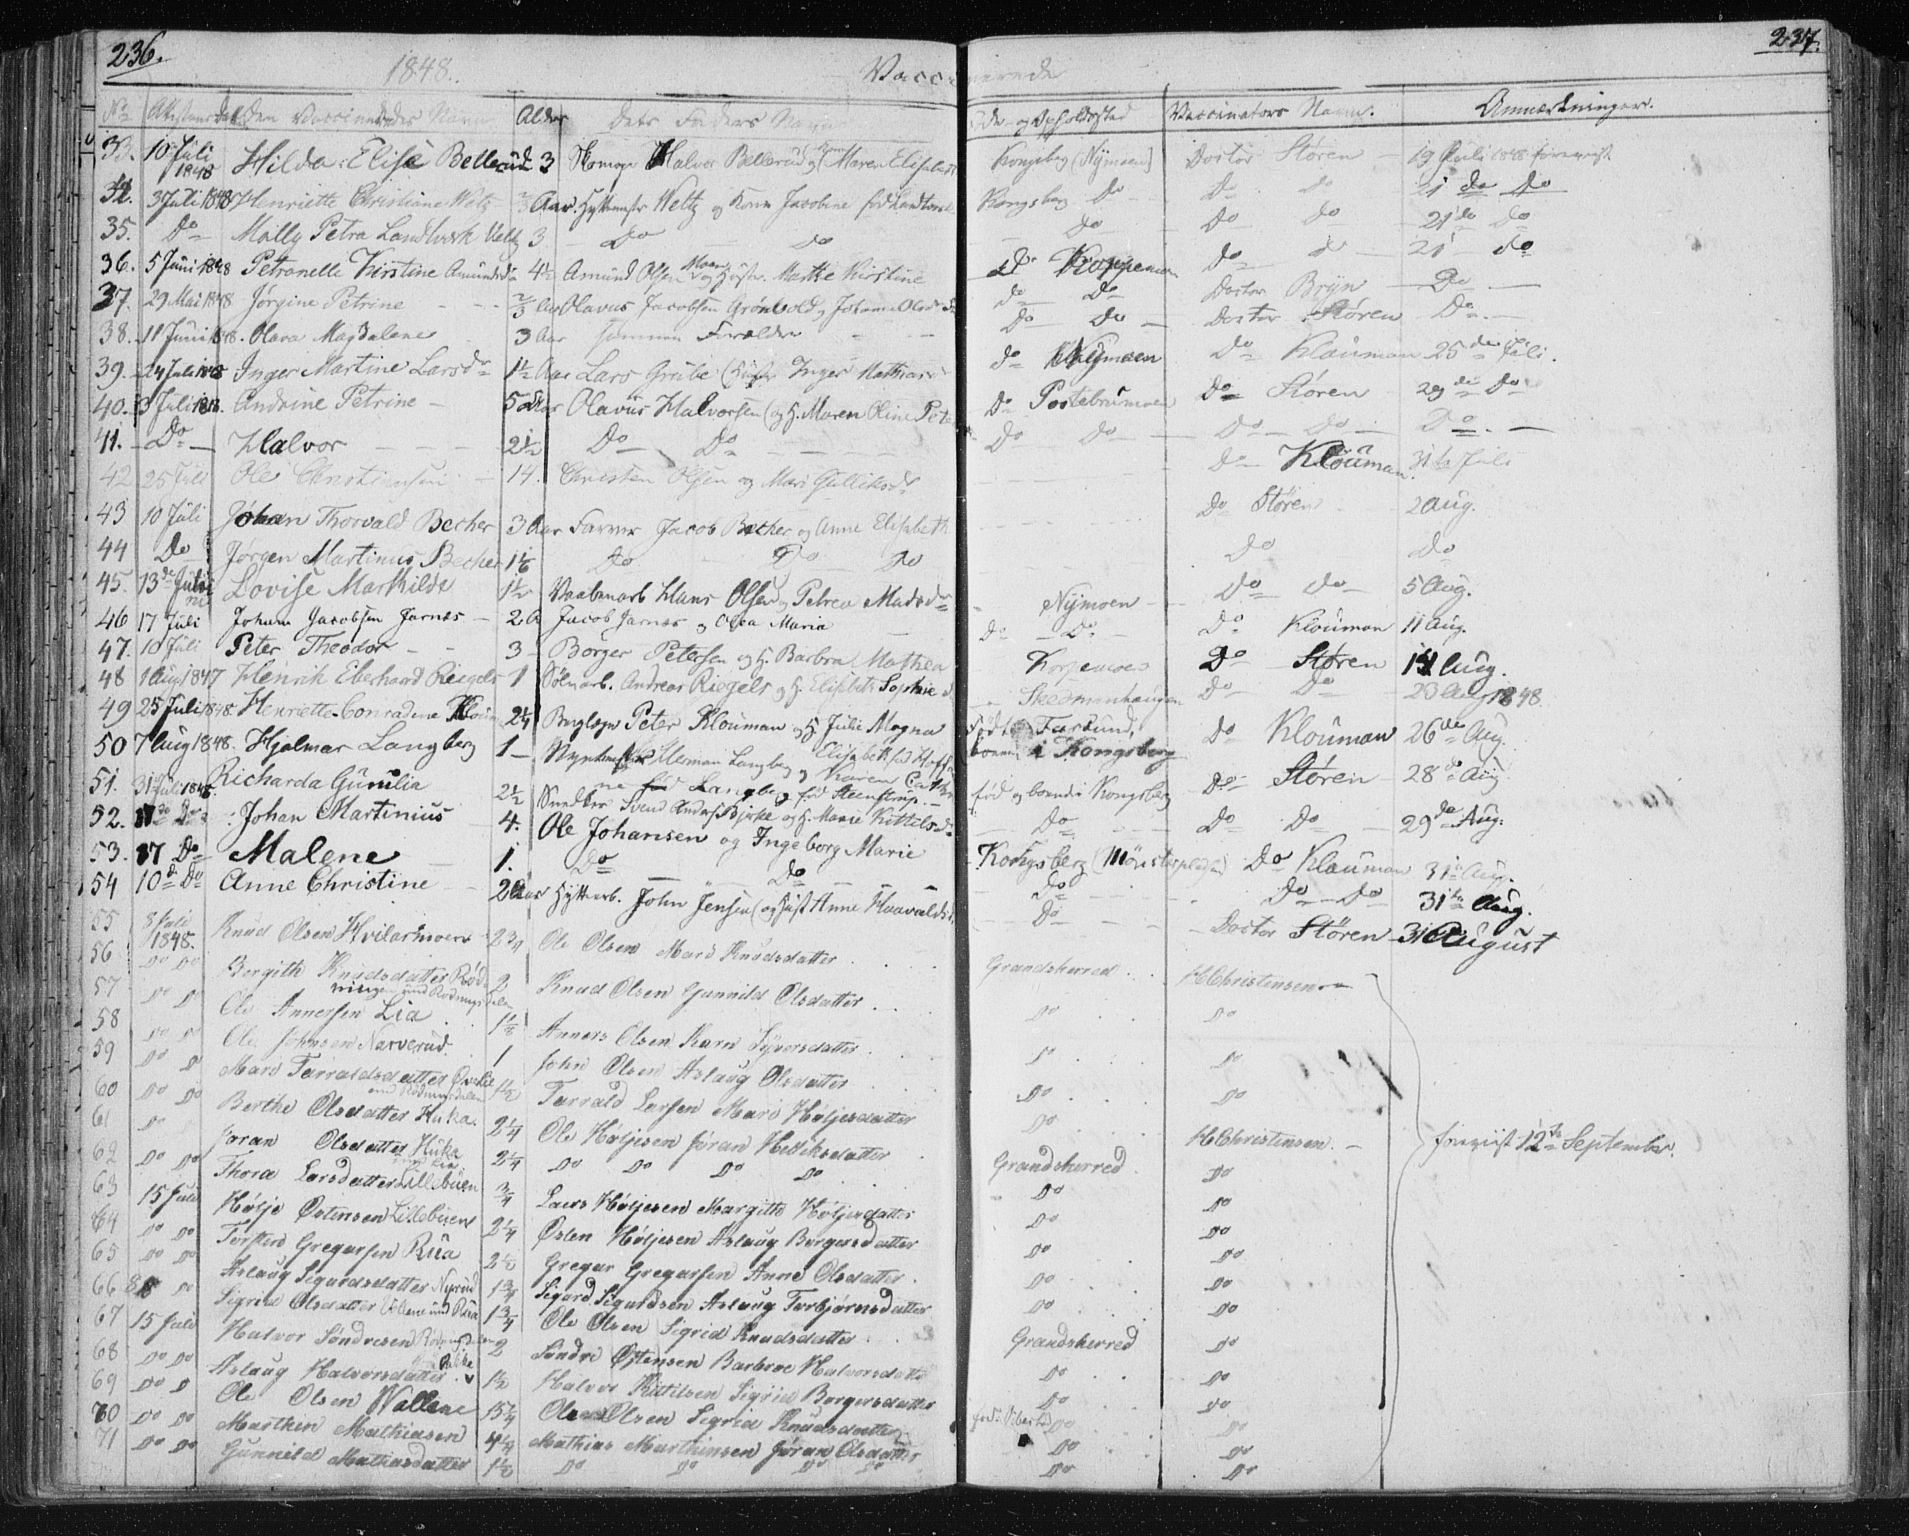 236.
237.
1848.
Vaccinerede
No Attestens Dat. den Vaccineredes Navn Alder Dets Faders Navn Føde- og Opholdssted Vaccinators Navn. Anmærkninger.
33. 10 Juli 1848 Hilda Elise Bellerud 3 Halvor Bellerud og Maren Elisabeth Kongsberg (Nymoen) Doctor Støren 19 Juli 1848 foreviist
34. 3 Juli 1848 Henriette Christiane Weltz Aar. Hyttemstr Weltz og Kone Jacobine Kongsberg Do Do Do 21 de Do
35. Do Molly Petra Landtværk Veltz 3 Do Do Do Do Do 21 do Do
36. 5 Juni 1848 Petronelle Kirstine Amundsd. 4½ Amund Olsen Moen og Hustr. Mathe Kirstine Do Koppemoen Do Do 21 do
37. 29 Mai 1848 Jørgine Petrine Aar Olavus Jacobsen Grønvold og Johanne Olsd. Do Do Doctor Bryn Do
38. 11 Juni 1848. Olava Magdalene 3 Aar sammen Forældre Do Do Doctor Støren Do.
39. 24 Juli 1848 Inger Martine Larsd. 1½ Aar Lars Grube (Hustr Inger Mathias Do Nymoen Do Klouman 25 de Juli.
40. 3 Juli 1848. Andrine Petrine 5 Aar Olavus Halvorsen (og H. Maren Oline Do Postebrumoen Do Støren 29 de Do
41. Do Halvor 2½ Do Do Do Do Do Do Do.
42 25 Juli Ole Christiansen 14. Christen Olsen og Mari Gulliksd. Do Klouman 31te Juli
43 10 Juli Johan Thorvald Becher 3 Aar Farver Jacob Becher og Anne Elisabeth Do Støren 2 Aug.
44 Do Jørgen Martinus Becher 1⅙ Do Do Do Do Do
45. 13 de Juli Lovise Mathilde 1½ Vaabenarb Hans Olsen og Petrea Madsd. Nymoen Do Do 5 Aug.
46 17 Juli Johan Jacobsen Jarnæs 2 A Jacob Jarnæs og Olea Maria Do Do Do Klouman 11 Aug.
47. 10 Juli Peter Theodor 3 Borger Petersen og H. Barbra Mathea Koppemoen Do Støren 14 Aug.
48 1 Aug 1847 Henrik Eberhard Riegels 1 Sølvarb. Andreas Riegels og H. Elisabeth Sophie Skedsmanhaugen Do Do 23 Aug 1848.
49 25 Juli 1848. Henriette Conradine Klouman 2¼ Berglæge Peter Klouman og H Julie Magna Elisabeth Født Farsund, boende i Kongsberg Do Klouman 26 de Aug.
50 7 Aug 1848. Hjalmar Langberg 1 Myntmester Herman Langberg og Karen Cathrine Langberg fød Steenstrup. fød og boende Kongsberg Do Støren 28 do Aug
51. 31te Juli 1848. Richarda Gunilia 2½ Snedker Svend Anders. Bjerke og H. Marie Kittilsd. Do Do Do 29 de Aug.
52. 17 de Do Johan Martinius 4. Ole Johansen og Ingeborg Marie Kongsberg Do Klouman 31te Aug.
53. 17 Do Malene 1. Do Do Do Do Do 31te Aug.
54 10 de Do Anne Christine 2 Aar Hyttearb. John Jensen (og Hust Anne Haavaldsd. Do Doctor Støren 31 August
55 8 Juli 1848. Knud Olsen Hvilarmoen 2¾ Ole Olsen Mari Knudsdatter Grandsherred HChristensen
56 Do Do Bergith Knudsdatter Rødningen 2 Knud Olsen Gunnild Olsdatter Do Do
57 Do Do Ole Annersen Lia 1½ Anners Olsen Karn Syversdatter Do Do
58 Do Do Ole Johnsen Narverud. 1 John Olsen Aslaug Olsdatter Do Do
59 Do Do Mari Tarraldsdatter 1½ Tarrald Larsen Mari Høljesdatter Do
60 Do Do Berthe Olsdatter Huka. 2¼ Ole Høljesen Jøran Helliksdatter Grandsherred HChristensen. foreviist 12te September.
61 Do Jøran Olsdatter Huka 2¼ Do Do Do Do Do Do
62 Do Do Thora Larsdatter Lillebuen ¾ Laers Høljesen Margithe Høljesdatter Do Do
63 15 Juli Hølje Østensen Lillebuen 2¼ Østen Høljesen Aslaug Borgersdatter Do Do
64 Do Do Torsten Gregarsen Rua 2½ Gregar Gregarsen Anne Olsdatter Do Do
65 Do Do Aslaug Sigurdsdatter Nyrud 1¾ Sigurd Sigurdsen Aslaug Torbjørnsdatter Do Do
66 8 Do Sigrid Olsdatter und Rua 1¾ Ole Olsen Sigrid Knudsdatter Grandsherred Do
67 15 Juli Halvor Søndresen 2 Søndre Østensen Barbroe Halvorsdatter Do Do
68 Do Do Aslaug Halvorsdatter 1½ Halvor Kittilsen Sigrid Borgersdatter Do Do
69 Do D Ole Olsen Vallene 15¼ Ole Olsen Sigrid Knudsdatter Do Do
70 Do Do Marthen Mathiasen 4¼ Mathias Marthinsen Jøran Olsdatter Do Do
71 Do Do Gunnild Mathiasdatter 1½ Do Do Do Do Do Do